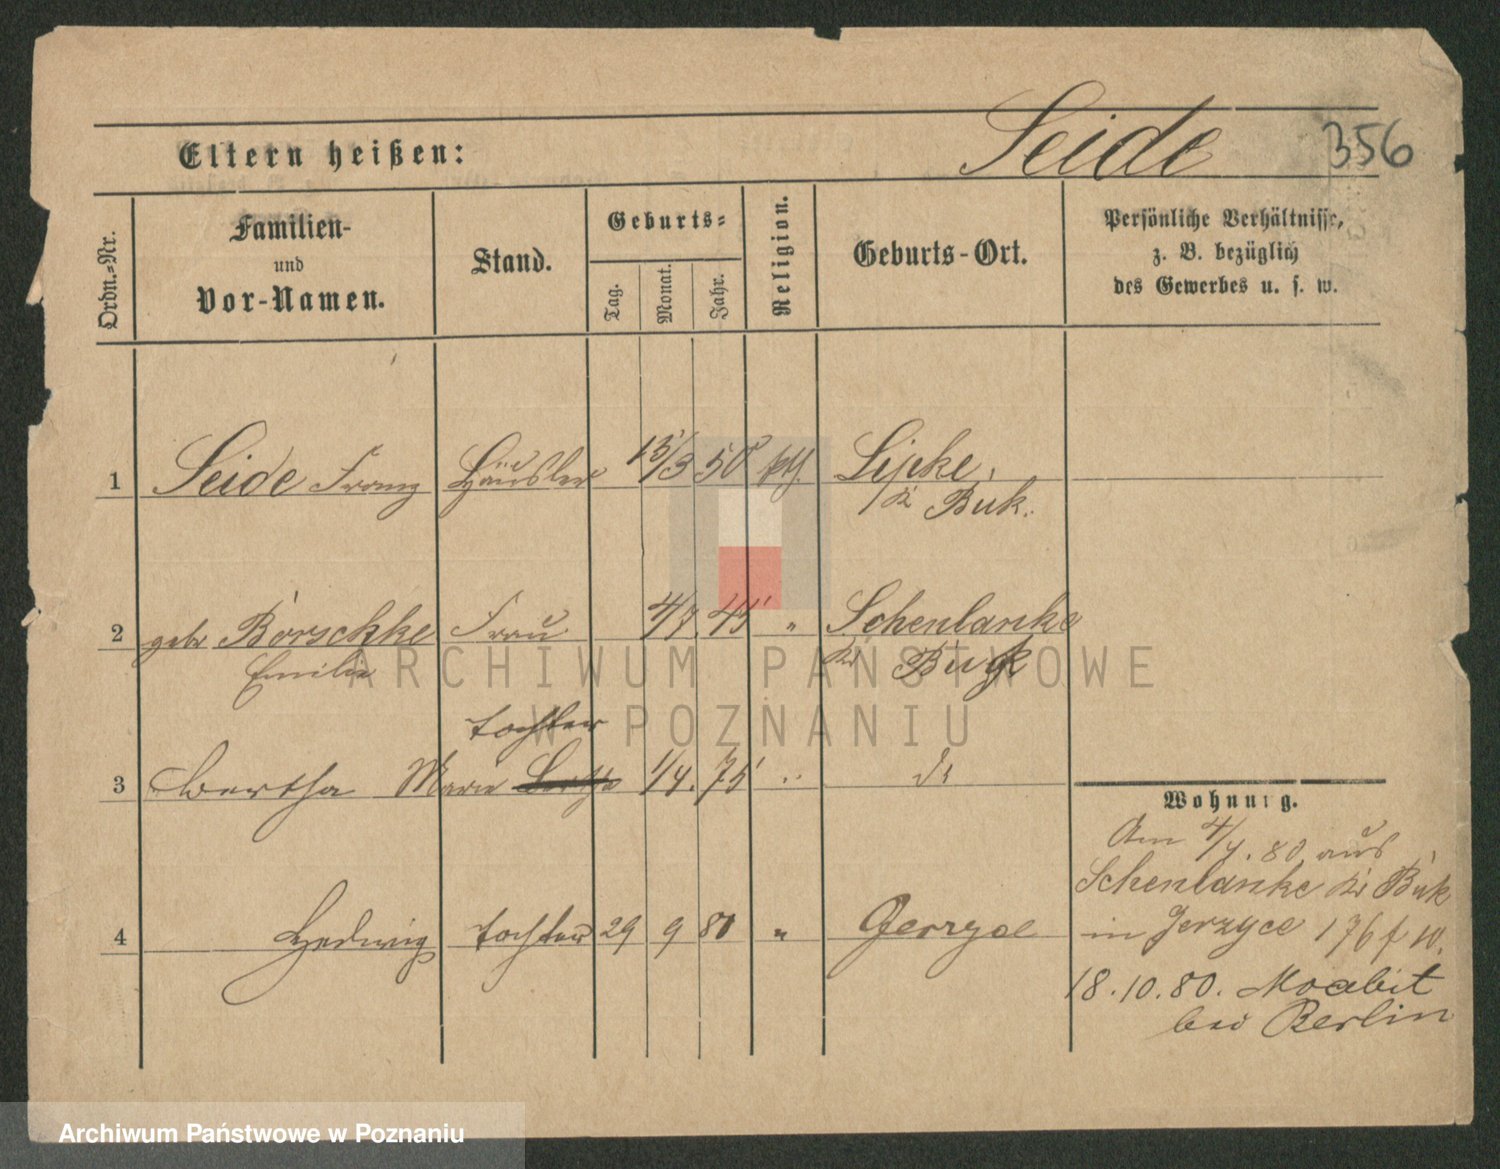 Eltern heißen: Seide 356
Ordn.-Nr.
Familien-
und
Vor-Namen.
Stand.
Geburts-
Tag.
Monat.
Jahr.
Religion.
Geburts-Ort.
Persönliche Verhältnisse,
z. B. bezüglich
des Gewerbes u. s. w.
1 Seide Franz Häusler 15/3 50 kth. Lipke,
Kr Buk.
2 gebr Borschke Frau 4/7. 45 " Schenlanke
Emilie Kr Buk
tochter
3 Bertha Marie 1/4. 75 " do
Wohnung.
Am 4/4. 80 aus
Schenlanke Kr Buk
4 Hedwig tochter 29 9 80 " Gerzyce
in Jerzyce 176 f W.
18.10.80. Moabit
bei Berlin
ARCHIWUM PAŃSTWOWE
W POZNANIU
Archiwum Państwowe w Poznaniu